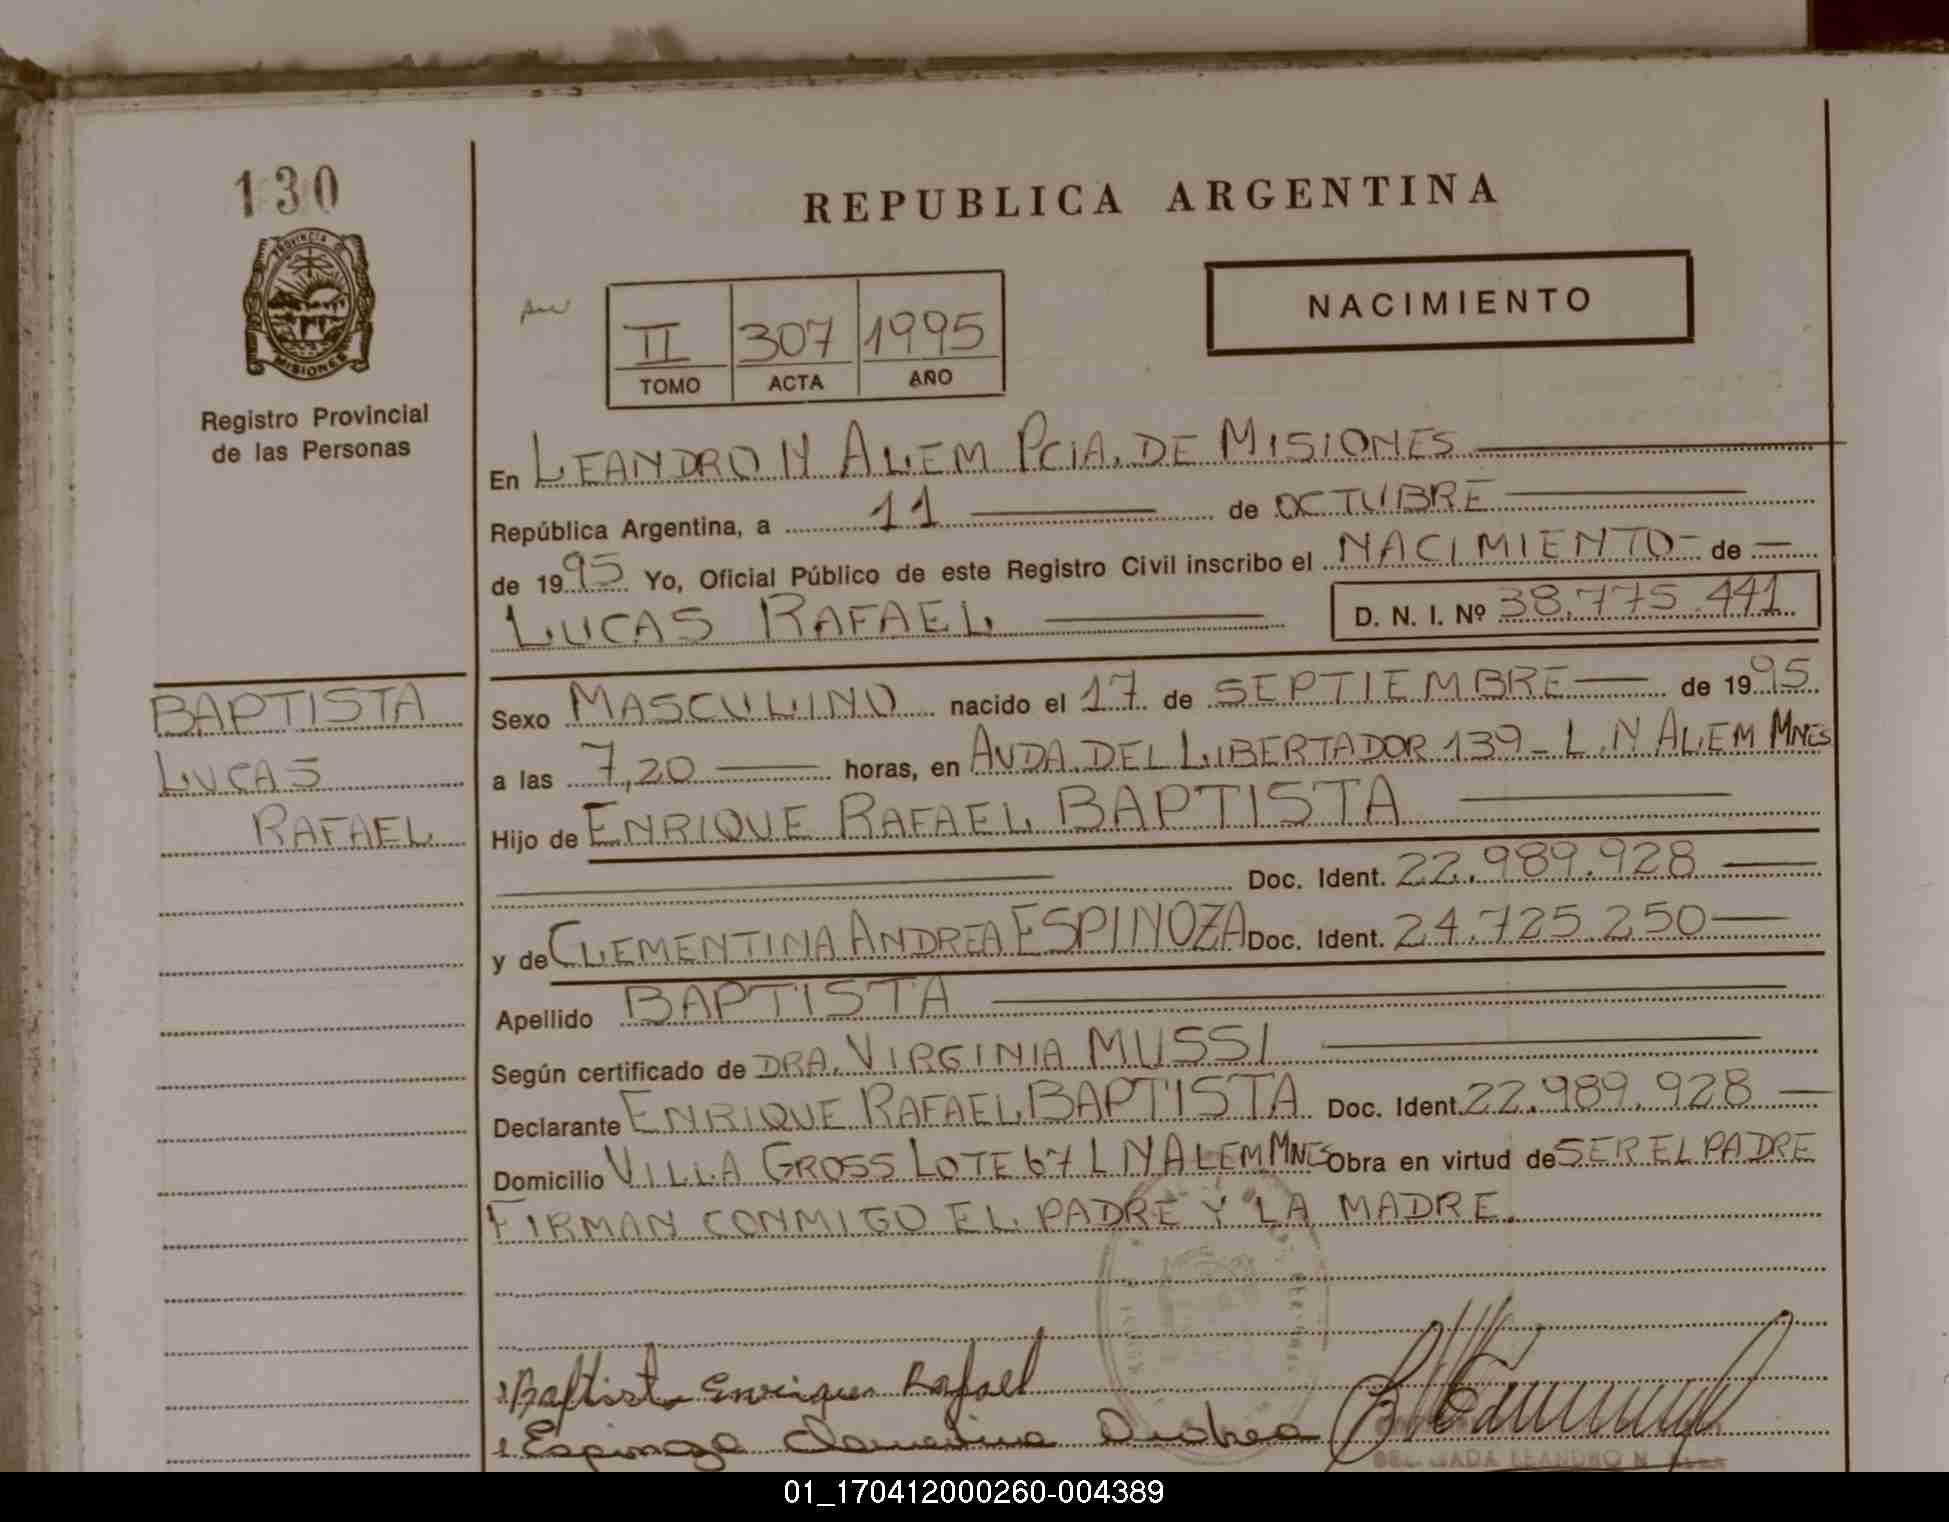 130
PROVINCIA DE
MISIONES
Registro Provincial
de las Personas
BAPTISTA
LUCAS
RAFAEL
REPUBLICA ARGENTINA
NACIMIENTO
II 307 1995
TOMO ACTA AÑO
En LEANDRO N ALEM PCIA. DE MISIONES
República Argentina, a 11 de OCTUBRE
de 1995 Yo, Oficial Público de este Registro Civil inscribo el NACIMIENTO de
LUCAS RAFAEL D. N. I. Nº 38.775.441
Sexo MASCULINO nacido el 17 de SEPTIEMBRE de 1995
a las 7,20 horas, en AVDA. DEL LIBERTADOR 139 - L.N ALEM MNES
Hijo de ENRIQUE RAFAEL BAPTISTA
Doc. Ident. 22.989.928
y de CLEMENTINA ANDREA ESPINOZA Doc. Ident. 24.725.250
Apellido BAPTISTA
Según certificado de DRA. VIRGINIA MUSSI
Declarante ENRIQUE RAFAEL BAPTISTA Doc. Ident. 22.989.928
Domicilio VILLA GROSS LOTE 67 L N ALEM MNES Obra en virtud de SER EL PADRE
FIRMAN CONMIGO EL PADRE Y LA MADRE.
Baptista Enrique Rafael
Espinoza Clementina Andrea
LEANDRO N.
01_170412000260-004389